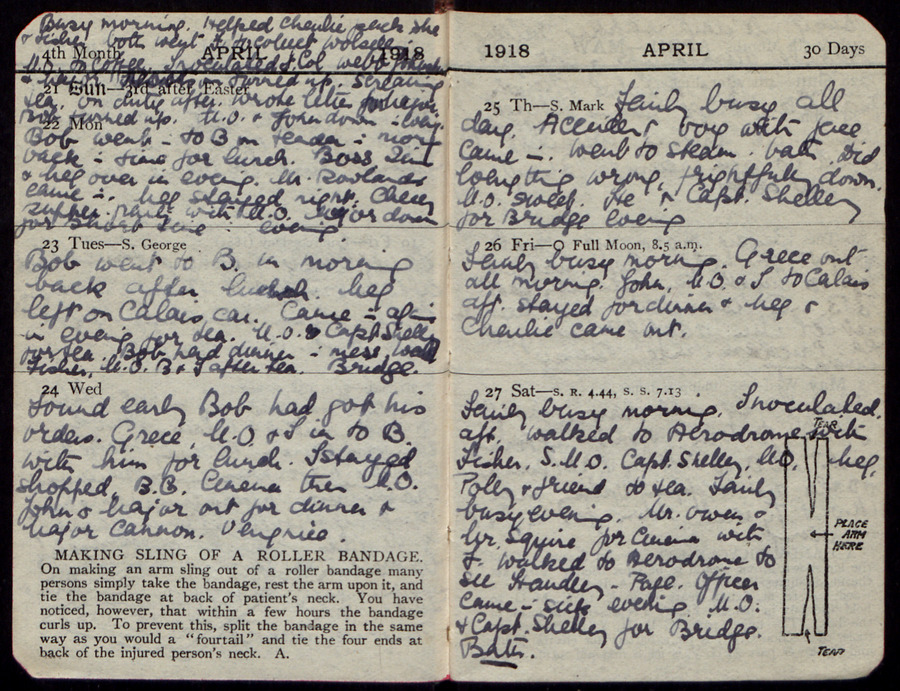 Busy morning. Helped Charlie pack she
& Fisher both went to
4th Month APRIL 1918
M.O. to Coffee. Inoculated & Col. Webb
& Major turned up. Screaming
21 Sun—3rd after Easter
tea. On duty after. Wrote letter
Bob turned up. M.O. & John down
22 Mon
Bob went to B in tender
back time for lunch. Boss
& Meg over in evening. Mr. Rowlands
came in. Meg stayed night. Cheery
supper party with M.O. Major down
for short time evening
23 Tues—S. George
Bob went to B. in morning
back after lunch. Meg
left on Calais car. Came again
in evening for tea. M.O. & Capt Shelley
for tea. Bob had dinner mess
Fisher, M.O. B & I after tea. Bridge.
24 Wed
Found early Bob had got his
orders. Grece, M.O. & I in to B.
with him for lunch. I stayed
shopped, B.B. Cinema then M.O.
John & Major out for dinner &
Major Cannon.
MAKING SLING OF A ROLLER BANDAGE.
On making an arm sling out of a roller bandage many
persons simply take the bandage, rest the arm upon it, and
tie the bandage at back of patient's neck. You have
noticed, however, that within a few hours the bandage
curls up. To prevent this, split the bandage in the same
way as you would a "fourtail" and tie the four ends at
back of the injured person's neck. A.
1918 APRIL 30 Days
25 Th—S. Mark Fairly busy all
day. Accident boy with face
came in. Went to steam bath. Did
everything wrong, frightfully down.
M.O. sweet. He & Capt. Shelley
for Bridge evening
26 Fri—O Full Moon, 8.5 a.m.
Fairly busy morning. Grece out
all morning. John, M.O. & I to Calais
aft. stayed for dinner & Meg &
Charlie came out.
27 Sat—S. R. 4.44, S. S. 7.13
Fairly busy morning. Inoculated.
aft. walked to Aerodrome with
Fisher. S.M.O. Capt. Shelley, M.O. Meg,
Polly & friend to tea. Fairly
busy evening. Mr. Owen &
Mr. Squire for Cinema with
F. walked to Aerodrome to
see Handley-Page. Officer
came in sick evening M.O.
& Capt. Shelley for Bridge.
Bath.
TEAR
PLACE
ARM
HERE
TEAR